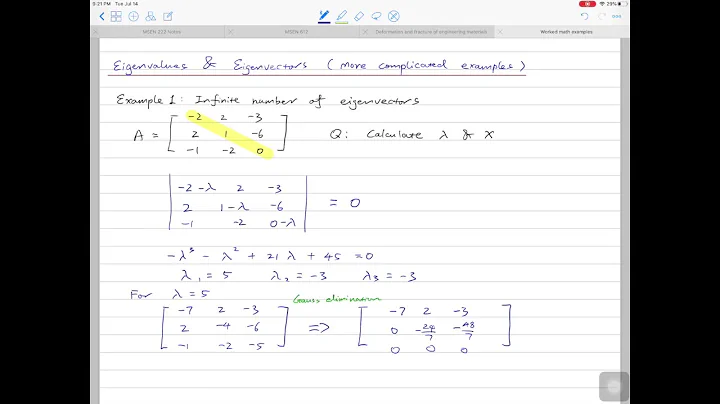 9:21 PM Tue Jul 14
29%
MSEN 222 Notes
MSEN 612
Deformation and fracture of engineering materials
Worked math examples
Eigenvalues & Eigenvectors (more complicated examples)
Example 1: Infinite number of eigenvectors
A = [ -2 2 -3
2 1 -6
-1 -2 0 ]
Q: Calculate λ & X
| -2-λ 2 -3
2 1-λ -6
-1 -2 0-λ | = 0
-λ³ - λ² + 21 λ + 45 = 0
λ₁ = 5 λ₂ = -3 λ₃ = -3
For λ = 5
Gauss elimination
[ -7 2 -3
2 -4 -6
-1 -2 -5 ]
=>
[ -7 2 -3
0 -24/7 -48/7
0 0 0 ]